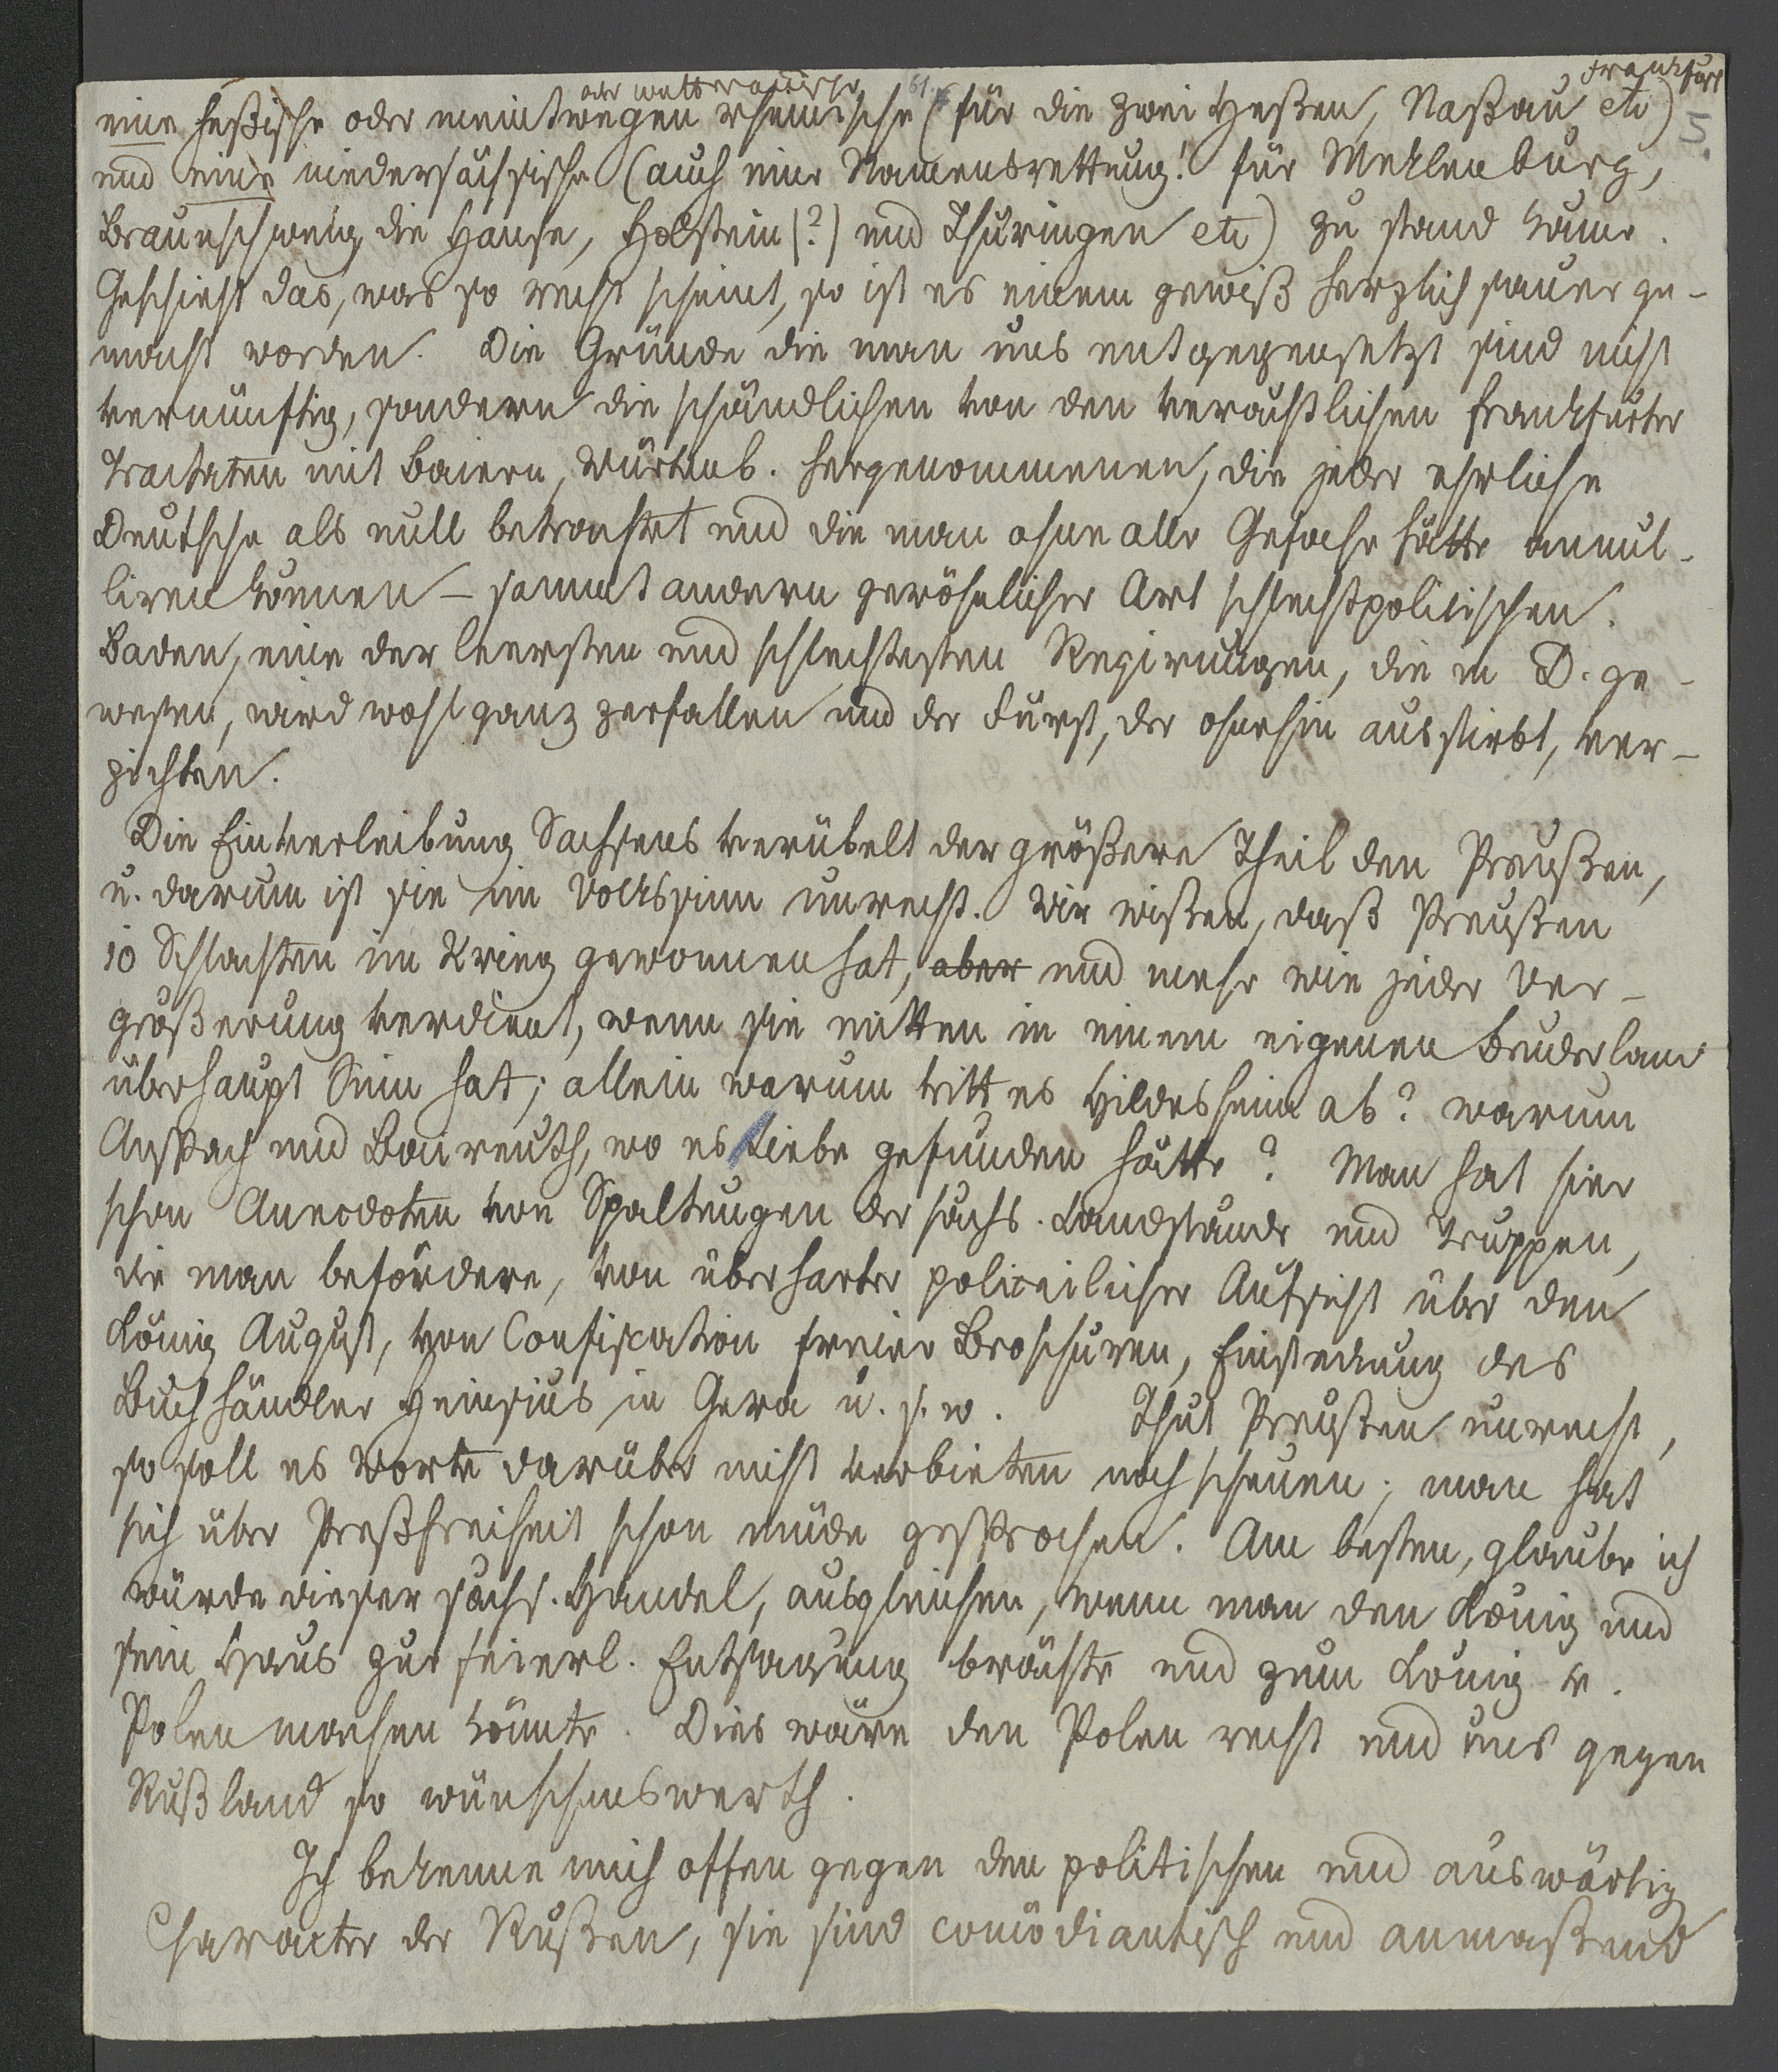 oder wetterauische Frankfurt
eine heßische oder meintwegen rheinische (für die zwei Heßen, Naßau etc)
5.
und eine niedersächsische (auch eine Namensrettung! für Meklenburg,
Braunschweig, die Hanse, Holstein (?) und Thuringen etc) zu stand käme.
Geschieht das, was so recht scheint, so ist es einem gewiß herzlich sauer ge-
macht worden. Die Gründe die man uns entgegensetzt sind nicht
vernünftig, sondern die schändlichen von den Frankfurter
Tractaten mit Baiern, Würtenb. hergenommenen, die jeder ehrliche
Deutsche als null betrachtet und die man ohne alle Gefahr hätte annul-
liren können – sammt andern gewöhnlicher Art schlechtpolitischen.
Baden, eine der leersten und schlechtesten Regirungen, die in D. ge-
wesen, wird wohl ganz zerfallen und der Fürst, der ohnehin ausstirbt, ver-
zichten.
Die Einverleibung Sachsens verübelt der größere Theil den Preußen,
u. darum ist sie im Volkssinn unrecht. Wir wißen, daß Preußen
10 Schlachten im Krieg gewonnen hat, aber und mehr wie jeder Ver-
größerung verdient, wenn sie mitten in einem eigenen Bruderland
überhaupt Sinn hat; allein warum tritt es Hildesheim ab? warum
Anspach und Baireuth, wo es Liebe gefunden hätte? Man hat hier
schon Anecdoten von Spaltungen der sächs. Landstände und Truppen,
die man befördere, von überharter policeilicher Aufsicht über den
König August, von Confiscation freier Broschüren, Einsteckung des
Buchhändler Heinsius in Gera u. s. w. Thut Preußen unrecht,
so soll es Worte darüber nicht verbieten noch scheuen; man hat
sich über Preßfreiheit schon müde gesprochen. Am besten, glaube ich
würde dieser sächs. Handel, ausgleichen, wenn man den König und
sein Haus zur feierl. Entsagung brächte und zum König v.
Polen machen könnte. Dies wäre den Polen recht und uns gegen
Rußland so wünschenswerth.
Ich bekenne mich offen gegen den politischen und auswärtig
Character der Rußen, sie sind comödiantisch und anmaßend